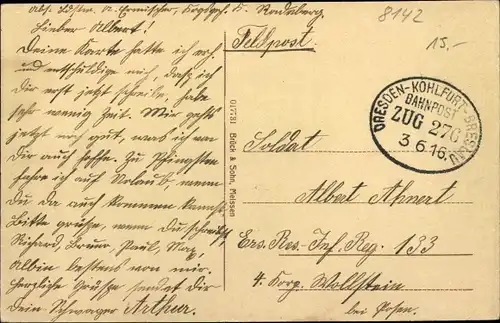 Abs. Ldstm. A. Ermischer, Kogsgef. K. Radeberg.
Lieber Albert!
Deine Karte hatte ich erh.
und entschuldige mich, daß ich
Dir erst jetzt schreibe, habe
sehr wenig Zeit. Mir gehts
jetzt noch gut, was ich von
Dir auch hoffe. Zu Pfingsten
fahre ich auf Urlaub, wenn
Du da auch kommen kannst.
Bitte grüße, wenn Du schreibst
Richard, Bruno, Paul, Max,
Albin bestens von mir.
Herzliche Grüße sendet Dir
Dein Schwager Arthur.
017731 Brück & Sohn, Meissen
8142
15.-
Feldpost.
DRESDEN-KOHLFURT-BRESLAU
BAHNPOST
ZUG 276
3.6.16.
Soldat
Albert Ahnert
Ers. Res. Inf. Reg. 133
4. Korp. Wollstein
bei Posen.